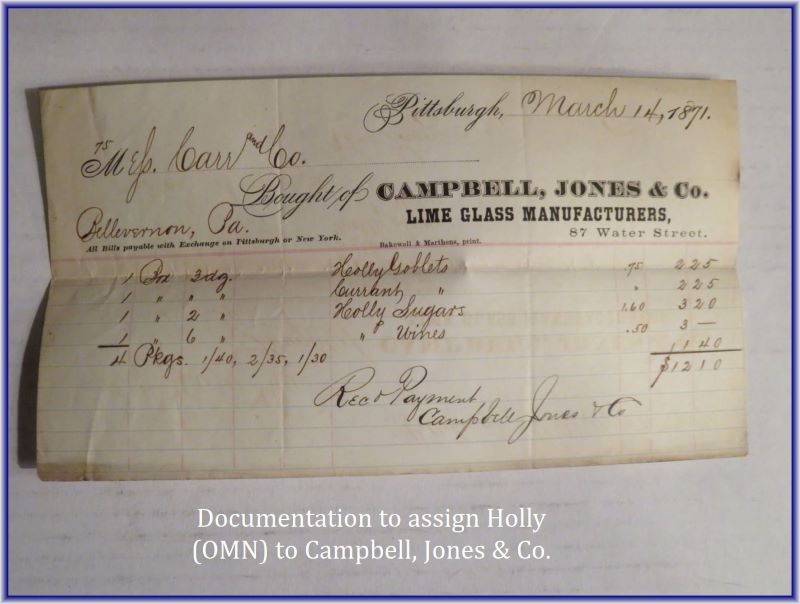 Pittsburgh, March 14, 1871.
75
Mess. Carr and Co.
Bought of CAMPBELL, JONES & Co.
LIME GLASS MANUFACTURERS,
Bellevernon, Pa.
87 Water Street.
All Bills payable with Exchange on Pittsburgh or New York.
Bakewell & Marthens, print.
1 Box 3 dz. Holly Goblets .75 2 2 5
1 " " " Currant " " 2 2 5
1 " 2 " Holly Sugars 1.60 3 2 0
1 " 6 " " Wines .50 3 —
4 Pkgs. 1/40, 2/35, 1/30 1 1 4 0
$1 2 1 0
Rec'd Payment
Campbell Jones & Co
Documentation to assign Holly
(OMN) to Campbell, Jones & Co.